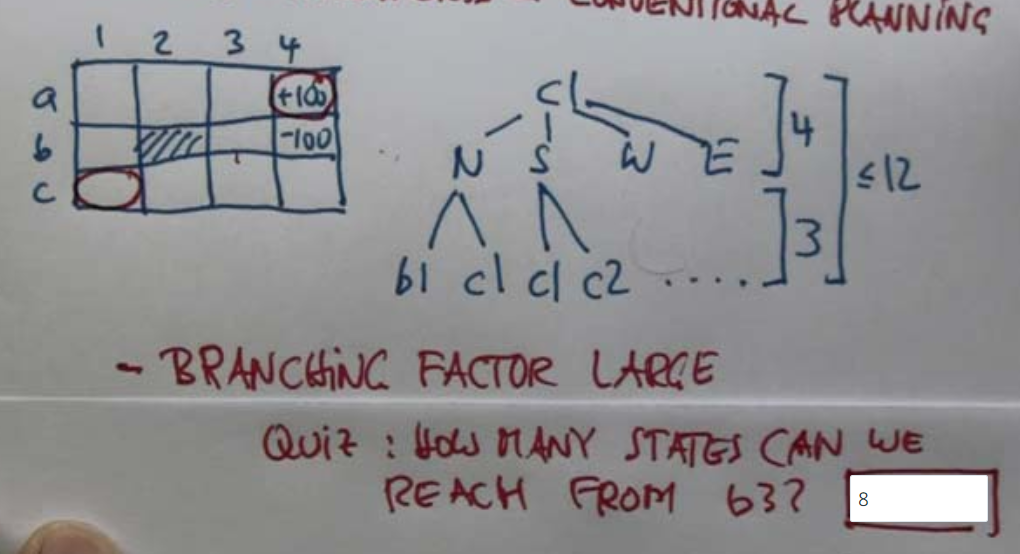 CONVENTIONAL PLANNING
1 2 3 4
a +100
b -100
c
C1
N S W E
]4
≤12
]3
b1 c1 c1 c2 .....
- BRANCHING FACTOR LARGE
QUIZ : HOW MANY STATES CAN WE
REACH FROM b3? 8